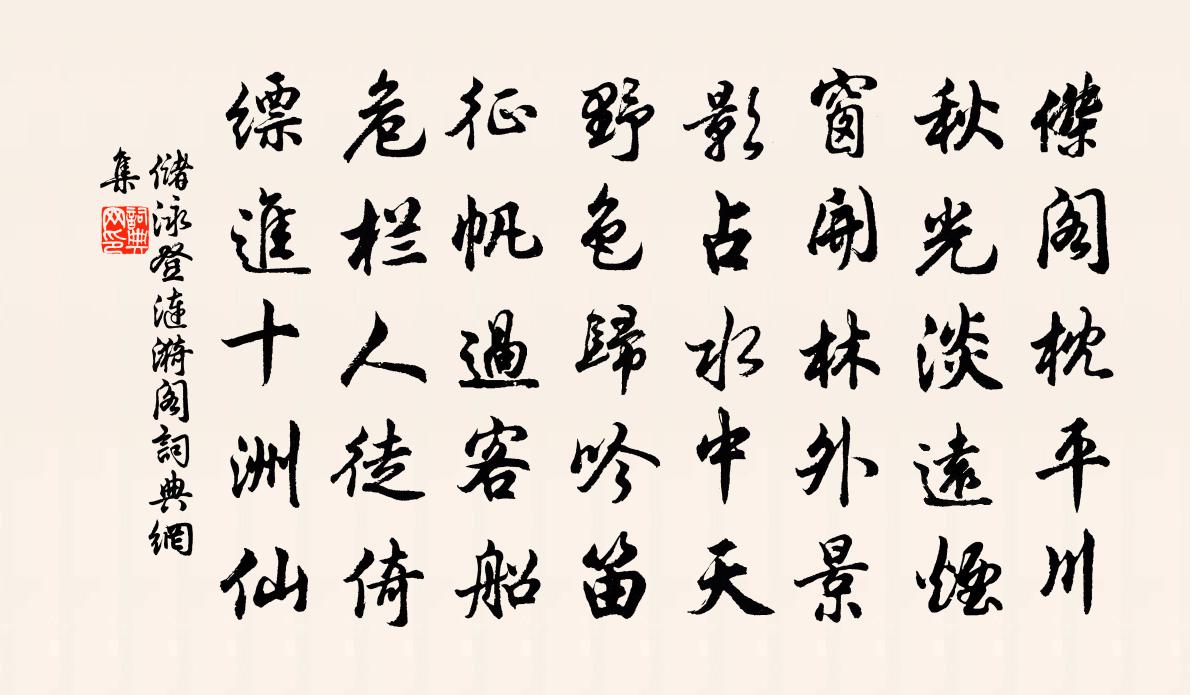 傑閣枕平川
秋光淡遠煙
窗開林外景
影占水中天
野色歸吟笛
征帆過客船
危栏人徒倚
缥進十洲仙
儲泳登漣漪閣詞典網
集
詞典
网印